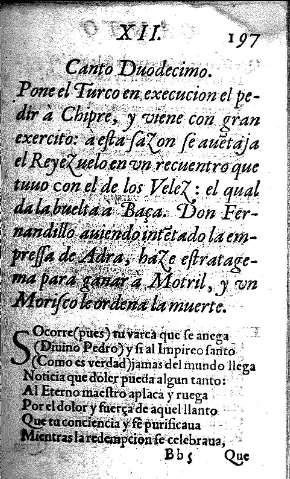 XII.
197
Canto Duodecimo.
Pone el Turco en execucion el pe-
dir à Chipre, y viene con gran
exercito: a esta sazon se auetaja
el Reyezuelo en vn recuentro que
tuuo con el de los Velez: el qual
da la buelta à Baça. Don Fer-
nandillo auiendo intẽtado la em-
pressa de Adra, haze estratage-
ma para ganar à Motril, y vn
Morisco le ordena la muerte.
SOcorre (pues) tu varca que se anega
(Diuino Pedro) y si al Impireo santo
(Como es verdad) jamas del mundo llega
Noticia que doler pueda algun tanto:
Al Eterno maestro aplaca y ruega
Por el dolor y fuerça de aquel llanto
Que tu conciencia y se purificaua
Mientras la redempcion se celebraua,
Bb5 Que